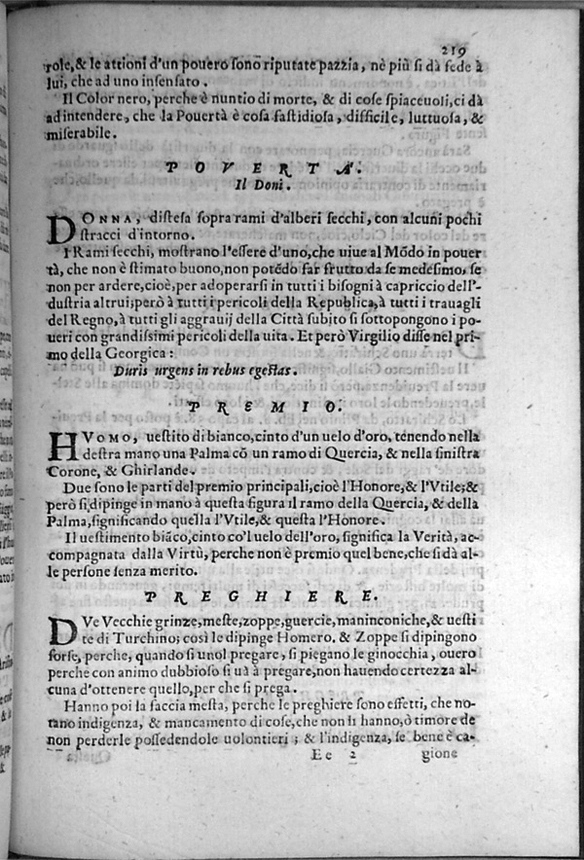 219
role, & le attioni d'un pouero sono riputate pazzia, nè più si dà fede à
lui, che ad uno insensato.
Il Color nero, perche è nuntio di morte, & di cose spiaceuoli, ci dà
ad intendere, che la Pouertà è cosa fastidiosa, difficile, luttuosa, &
miserabile.
POVERTÀ.
Il Doni.
DONNA, distesa sopra rami d'alberi secchi, con alcuni pochi
stracci d'intorno.
I Rami secchi, mostrano l'essere d'uno, che uiue al Mõdo in pouer
tà, che non è stimato buono, non potẽdo far frutto da se medesimo, se
non per ardere, cioè, per adoperarsi in tutti i bisogni à capriccio dell'-
dustria altrui; però à tutti i pericoli della Republica, à tutti i trauagli
del Regno, à tutti gli aggrauij della Città subito si sottopongono i po-
ueri con grandissimi pericoli della uita. Et però Virgilio disse nel pri-
mo della Georgica:
Duris urgens in rebus egestas.
PREMIO.
HVOMO, uestito di bianco, cinto d'un uelo d'oro, tenendo nella
destra mano una Palma cõ un ramo di Quercia, & nella sinistra
Corone, & Ghirlande.
Due sono le parti del premio principali, cioè l'Honore, & l'Vtile; &
però si dipinge in mano à questa figura il ramo della Quercia, & della
Palma, significando quella l'Vtile, & questa l'Honore.
Il uestimento biãco, cinto co'l uelo dell'oro, significa la Verità, ac-
compagnata dalla Virtù, perche non è premio quel bene, che si dà al-
le persone senza merito.
PREGHIERE.
DVe Vecchie grinze, meste, zoppe, guercie, maninconiche, & uesti
te di Turchino; così le dipinge Homero. & Zoppe si dipingono
forse, perche, quando si uuol pregare, si piegano le ginocchia, ouero
perche con animo dubbioso si uà à pregare, non hauendo certezza al-
cuna d'ottenere quello, per che si prega.
Hanno poi la faccia mesta, perche le preghiere sono effetti, che no-
tano indigenza, & mancamento di cose, che non si hanno, ò timore de
non perderle possedendole uolontieri; & l'indigenza, se bene è ca-
Ee 2 gione